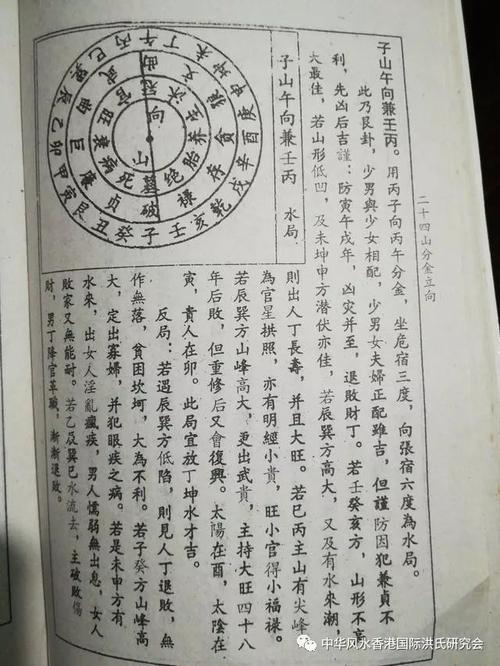 二十四山分金立向
子山午向兼壬丙。用丙子向丙午分金,坐危宿三度,向張宿六度為水局。
此乃艮卦,少男與少女相配,少男女夫婦正配雖吉,但謹防因犯兼貞不
利,先凶后吉謹:防寅午戌年,凶灾并至,退敗財丁。若壬癸亥方,山形不高
大最佳,若山形低凹,及未坤申方潛伏亦佳,若辰巽方高大,又及有水來潮
子山午向兼壬丙 水局
午丁未坤申庚酉辛戌乾亥壬子癸丑艮寅甲卯乙辰巽巳丙
曲文狼貪存祿破貞廉巨曲武
冠沐生养胎绝墓死病衰旺官
向
山
則出人丁長壽,并且大旺。若巳丙主山有尖峰
為官星拱照,亦有明經小貴,旺小官得小福祿。
若辰巽方山峰高大,更出武貴,主持大旺四十八
年后敗,但重修后又會復興。太陽在酉,太陰在
寅,貴人在卯。此局宜放丁坤水才吉。
反局:若遇辰巽方低陷,則見人丁退敗,無
作無落,貧困坎坷,大為不利。若子癸方山峰高
大,定出寡婦,并犯眼疾之病。若是未申方有
水來,出女人淫亂瘋疾,男人懦弱無出息,女人
敗家又無能耐。若乙辰巽巳水流去,主破敗傷
財,男丁降官革職,漸漸退敗。
中华风水香港国际洪氏研究会